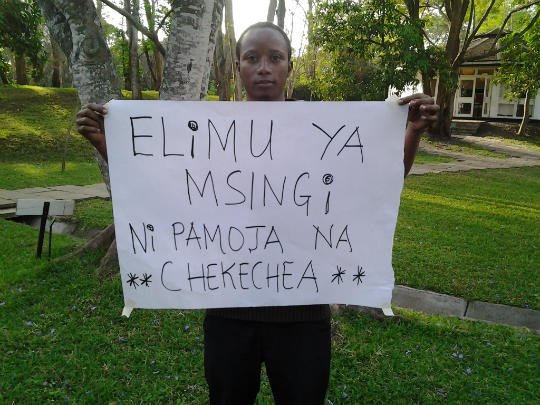 ELiMU YA
MSINGi
Ni PAMOJA NA
** CHEKECHEA **